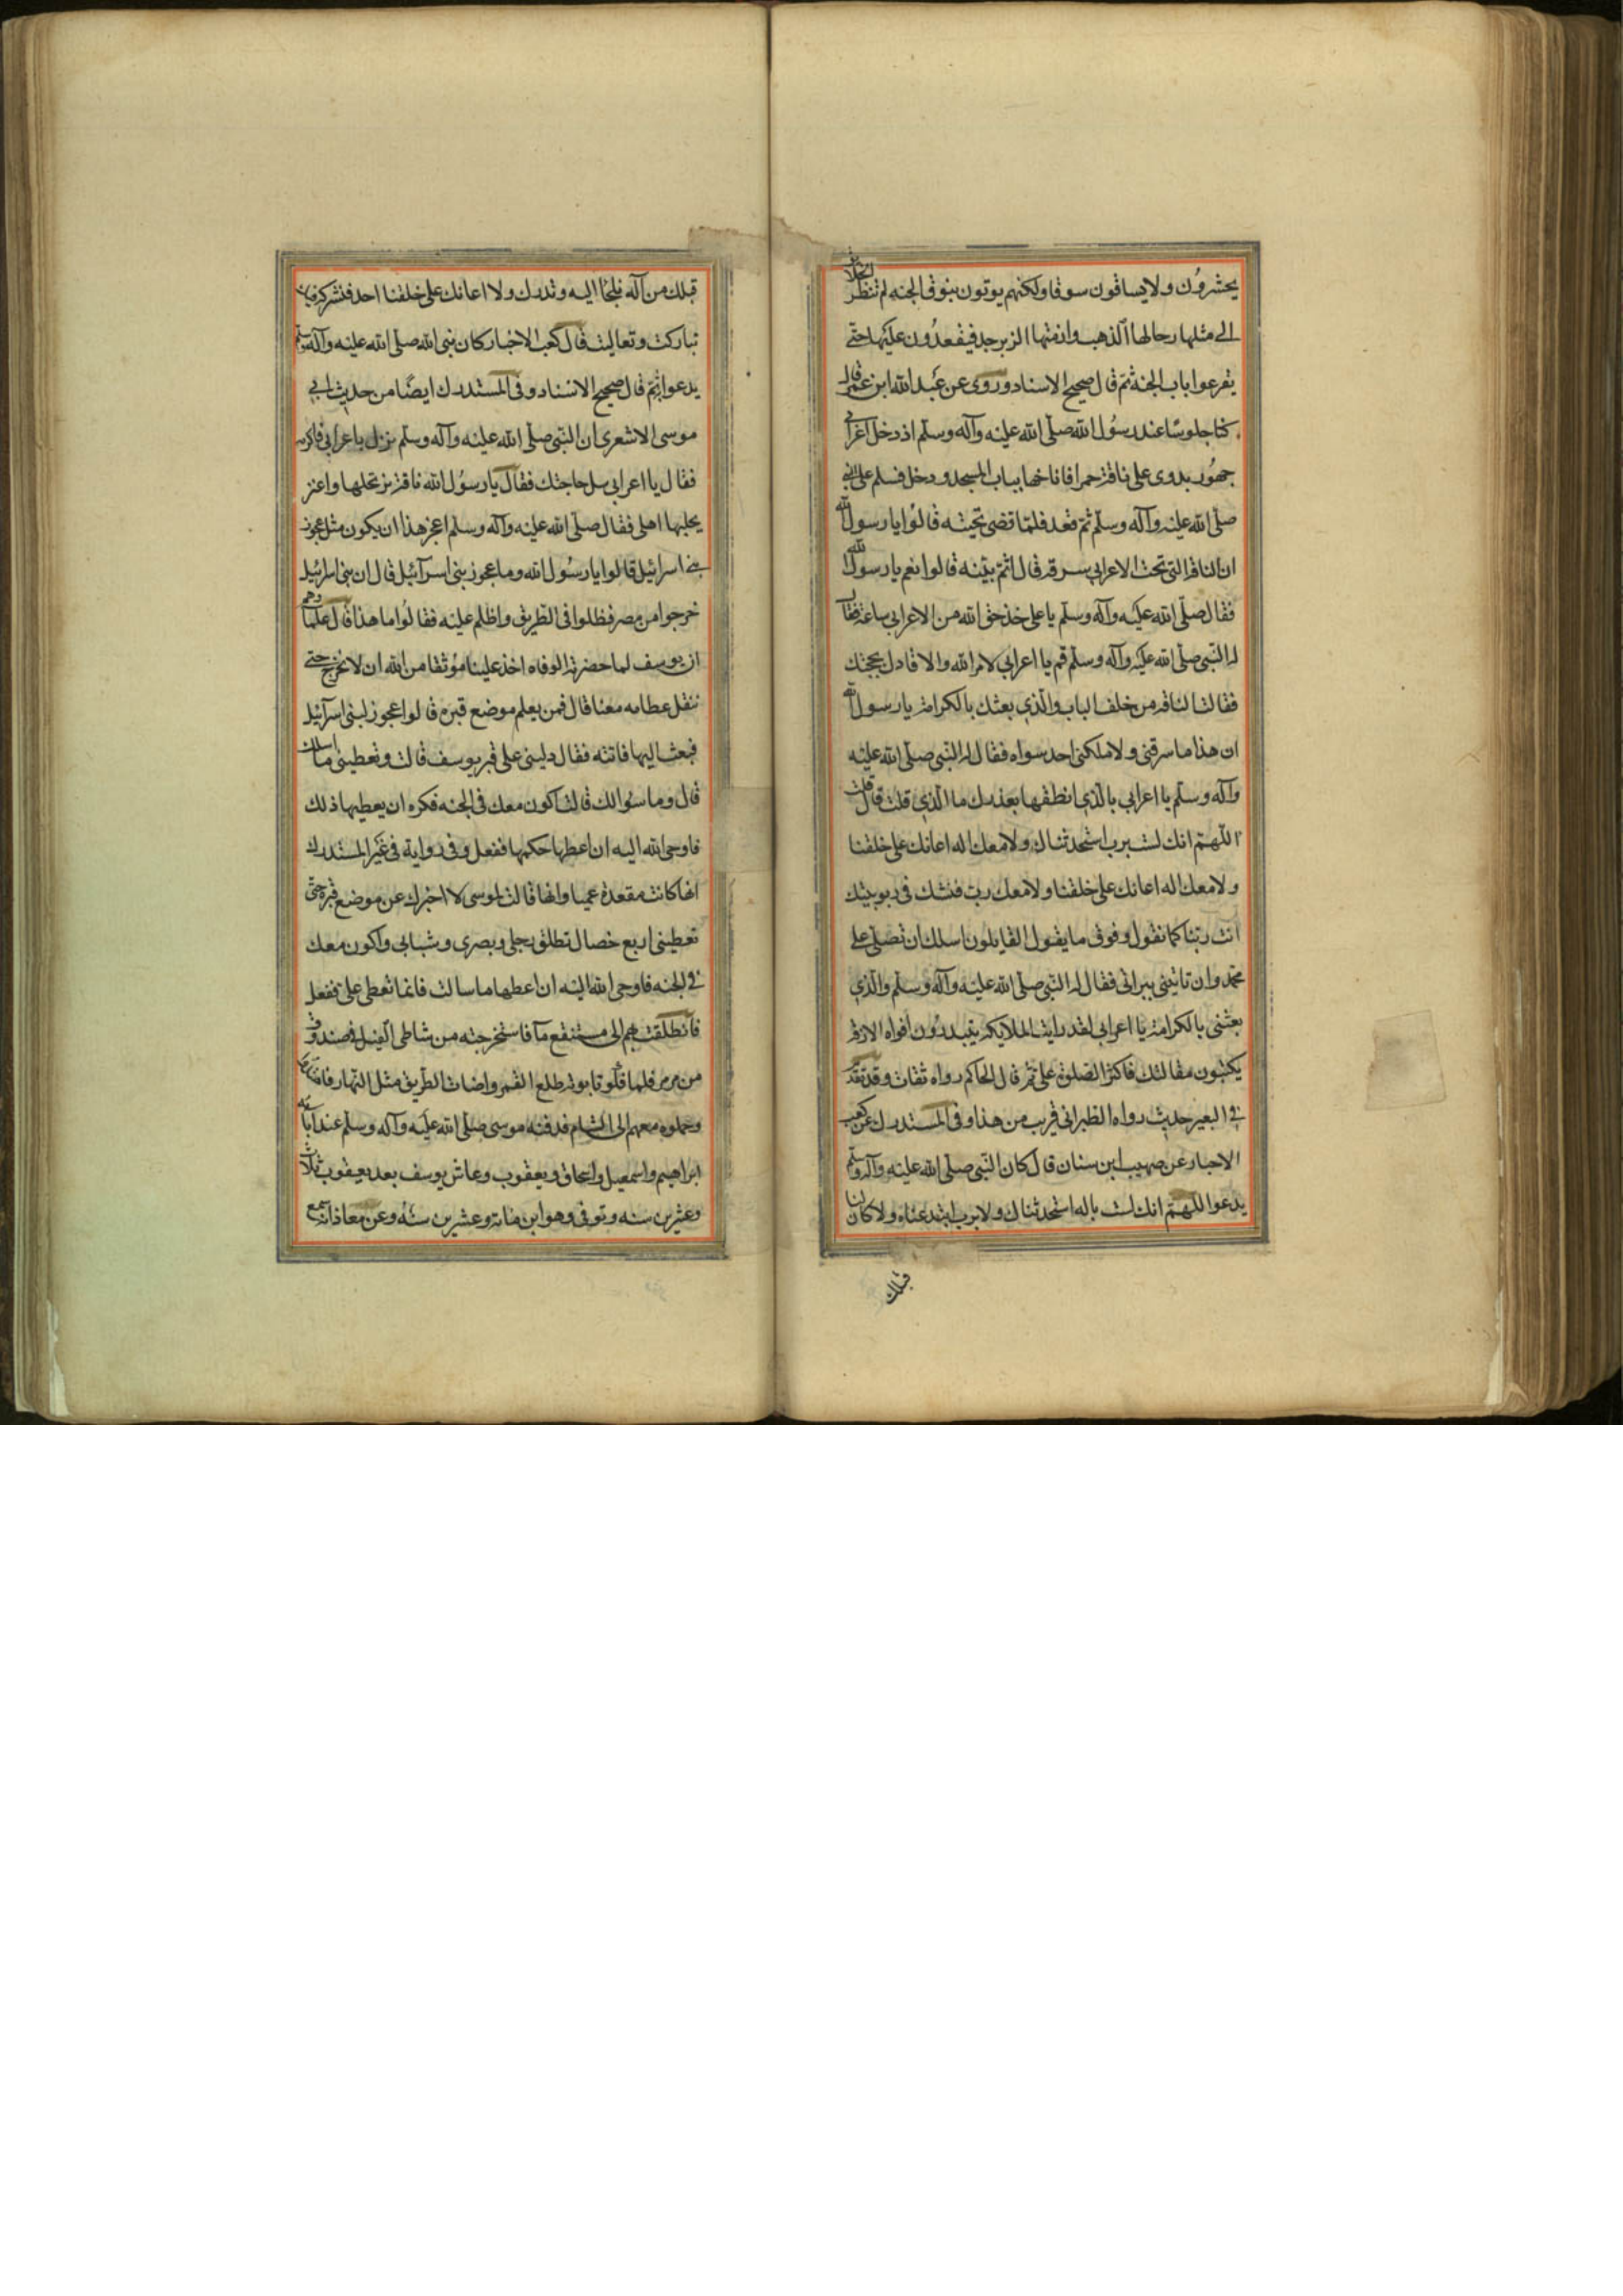 يحشرون ولا يساقون سوقا ولكنهم يوتون بنوق الجنه لم تنظر الخلايق
الى مثلها رحالها الذهب وازمتها الزبرجد فيقعدون عليها حتى
يقرعوا باب الجنة ثم قال صحيح الاسناد وروى عن عبد الله ابن عمر قال
كنا جلوسا عند رسول الله صلى الله عليه وآله وسلم اذ دخل اعرابي
جهور بدوى على ناقة حمرا فاناخها بباب المسجد ودخل فسلم على النبي
صلى الله عليه وآله وسلم ثم قعد فلما قضى تحيته قالوا يا رسول الله
ان الناقة التي تحت الاعرابي سرقة قال اثم بينه قالوا نعم يا رسول الله
فقال صلى الله عليه وآله وسلم يا على خذ حق الله من الاعرابي ساعة فقال
له النبي صلى الله عليه وآله وسلم قم يا اعرابي لامر الله والا فادل بحجتك
فقالت الناقة من خلف الباب والذي بعثك بالكرامة يا رسول الله
ان هذا ما سرقني ولا ملكني احد سواه فقال له النبي صلى الله عليه
وآله وسلم يا اعرابي بالذي انطقها بعذرك ما الذي قلت قال قلت
اللهم انك لست برب استحدثناك ولا معك اله اعانك على خلقنا
ولا معك اله اعانك على خلقنا ولا معك رب فنشك في ربوبيتك
انت ربنا كما نقول وفوق ما يقول القايلون اسلك ان تصلي على
محمد وان تاتيني ببراتي فقال له النبي صلى الله عليه وآله وسلم والذي
بعثني بالكرامة يا اعرابي لقد رايت الملايكة يتبدرون افواه الازقة
يكتبون مقالتك فاكثر الصلوة على ثم قال الحاكم رواه ثقات وقد تقدم
في البعير حديث رواه الطبراني قريب من هذا وفي المستدرك عن كعب
الاحبار عن صهيب ابن سنان قال كان النبي صلى الله عليه وآله وسلم
يدعوا اللهم انك لست باله استحدثناك ولا برب ابتدعناه ولا كان لنا
قبلك
قبلك من آله نلجأ اليه ونذرك ولا اعانك على خلقنا احد فنشركه فيك
تباركت وتعاليت قال كعب الاخبار كان نبي الله صلى الله عليه وآله وسلم
يدعوا به ثم قال صحيح الاسناد وفي المستدرك ايضا من حديث ابي
موسى الاشعرى ان النبي صلى الله عليه وآله وسلم نزل باعرابي فاكرمه
فقال يا اعرابي سل حاجتك فقال يا رسول الله ناقة نرتحلها واعنز
يحلبها اهلي فقال صلى الله عليه وآله وسلم اعجز هذا ان يكون مثل عجوز
بني اسرائيل قالوا يا رسول الله وما عجوز بني اسرآئيل قال ان بني اسرائيل
خرجوا من مصر فظلوا في الطريق واظلم عليه فقالوا ما هذا قال علماوهم
ان يوسف لما حضرته الوفاه اخذ علينا موثقا من الله ان لا نخرج حتى
ننقل عظامه معنا قال فمن يعلم موضع قبره قالوا عجوز لبني اسرآئيل
فبعث اليها فاتته فقال دليني على قبر يوسف قالت وتعطيني ما اسلك
قال وما سوالك قالت اكون معك في الجنه فكره ان يعطيها ذلك
فاوحى الله اليه ان اعطها حكمها ففعل وفي رواية في غير المستدرك
انها كانت مقعدة عميا وانها قالت لموسى لا اخبرك عن موضع قبره حتى
تعطيني اربع خصال تطلق رجلي وبصرى وشبابي واكون معك
في الجنه فاوحى الله اليه ان اعطها ما سالت فانما تعطى على ففعل
فانطلقت بهم الى مستنقع مآ فاستخرجته من شاطى النيل في صندوق
من مرمر فلما قلوا تابوته طلع القمر واضات الطريق مثل النهار
وحملوه معهم الى الشام فدفنه موسى صلى الله عليه وآله وسلم عند آبائه
ابراهيم واسمعيل واسحاق ويعقوب وعاش يوسف بعد يعقوب ثلاث
وعشرين سنه وتوفي وهو ابن مائة وعشرين سنه وعن معاذ انه سمع